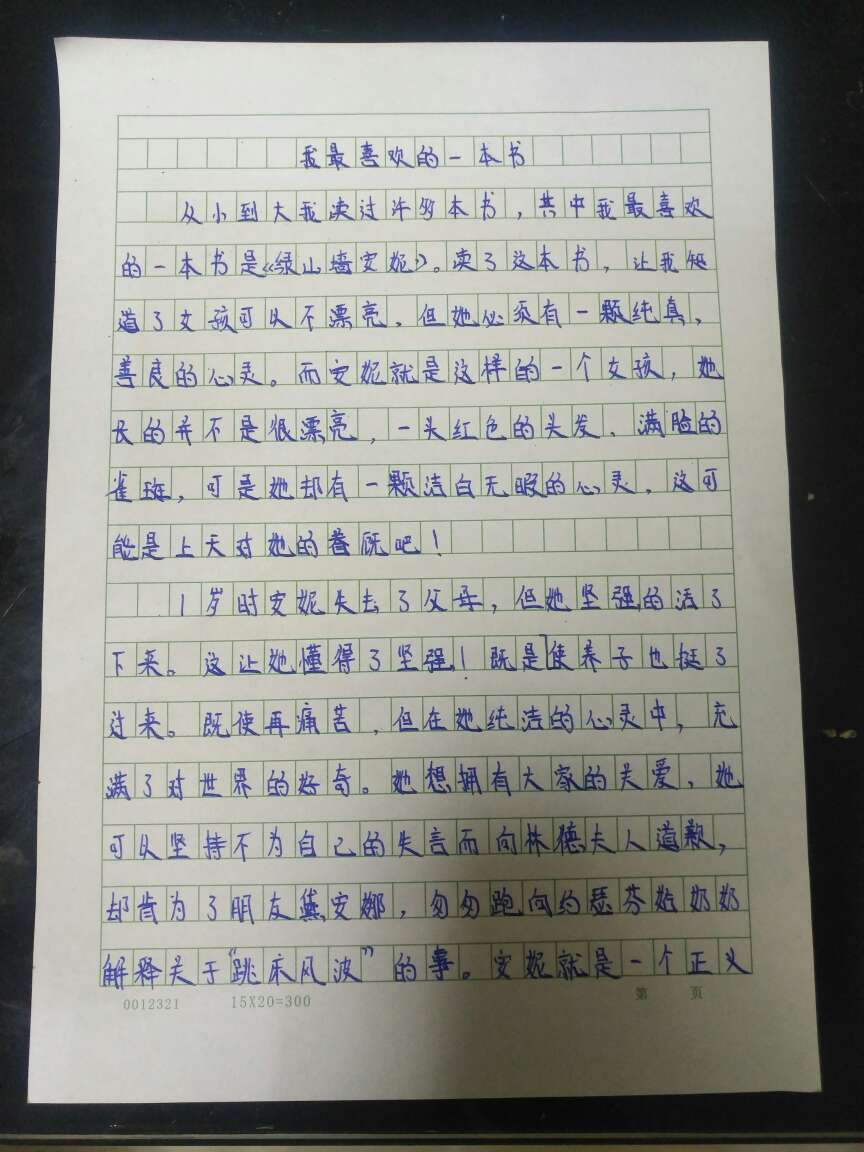 我最喜欢的一本书
从小到大我读过许多本书，其中我最喜欢
的一本书是《绿山墙安妮》。读了这本书，让我知
道了女孩可以不漂亮，但她必须有一颗纯真、
善良的心灵。而安妮就是这样的一个女孩，她
长的并不是很漂亮，一头红色的头发、满脸的
雀斑，可是她却有一颗洁白无暇的心灵，这可
能是上天对她的眷顾吧！
1岁时安妮失去了父母，但她坚强的活了
下来。这让她懂得了坚强！既是使养子也挺了
过来。既使再痛苦，但在她纯洁的心灵中，充
满了对世界的好奇。她想拥有大家的关爱，她
可以坚持不为自己的失言而向林德夫人道歉，
却肯为了朋友黛安娜，匆匆跑向约瑟芬姑奶奶
解释关于“跳床风波”的事。安妮就是一个正义
0012321 15X20=300 第 页